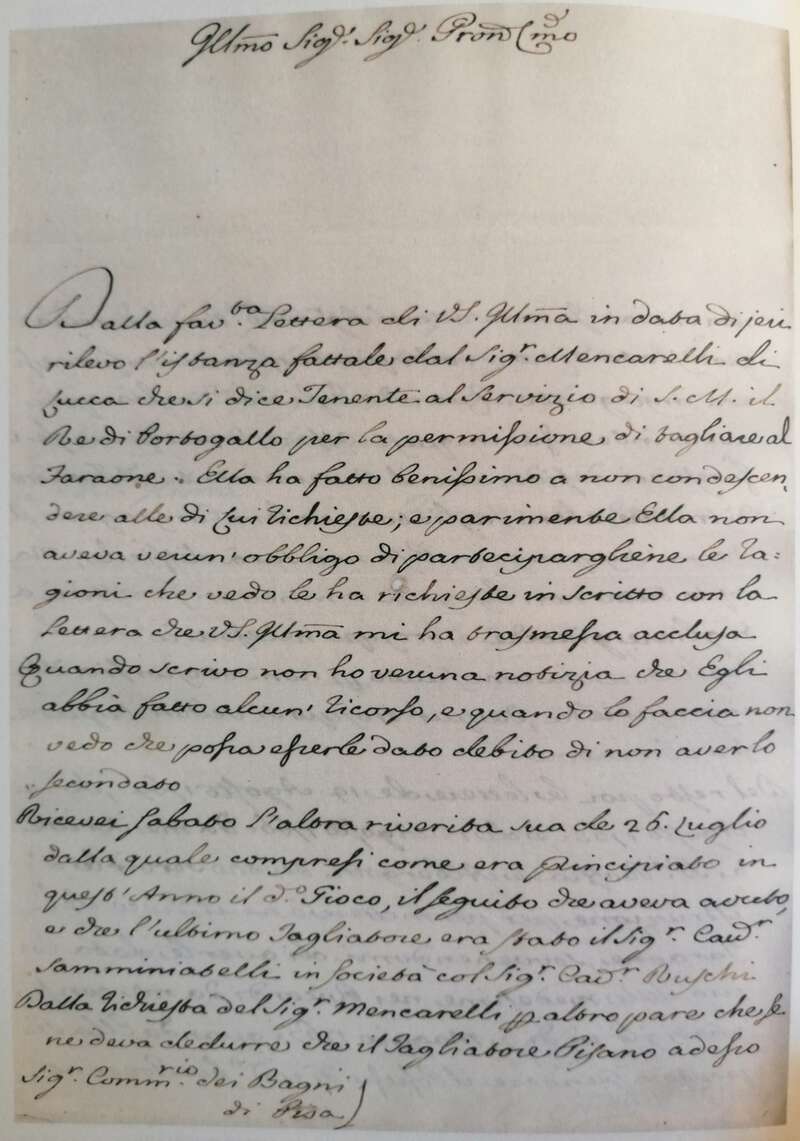 Illmo Sigr. Sigr. Pron Colmo
Dalla favta. Lettera di VS. Illma in data di jeri
rilevo l'istanza fattale dal Sigr. Mencarelli di
Lucca che si dice Tenente al Servizio di S. M. il
Re di Portogallo per la permissione di tagliare al
Faraone. Ella ha fatto benissimo a non condescen,
dere alle di lui richieste; e parimente Ella non
aveva verun' obbligo di parteciparghiene le ra=
gioni che vedo le ha richieste in scritto con la
Lettera che VS. Illma mi ha trasmessa acclusa
Quando scrivo non ho veruna notizia che Egli
abbia fatto alcun' ricorso, e quando lo faccia non
vedo che possa esserle dato debito di non averlo
secondato
Ricevei sabato l'altra riverita sua de 26. Luglio
dalla quale compresi come era principiato in
quest' Anno il do. Gioco, il seguito che aveva avuto,
e che l'ultimo Tagliatore era stato il Sigr. Cavr.
Samminiatelli in Società col Sigr. Cavr. Ruschi
Dalla richiesta del Sigr. Mencarelli p altro pare che se
ne deva dedurre che il Tagliatore Pisano adesso
Sigr. Commrio dei Bagni
di Pisa)